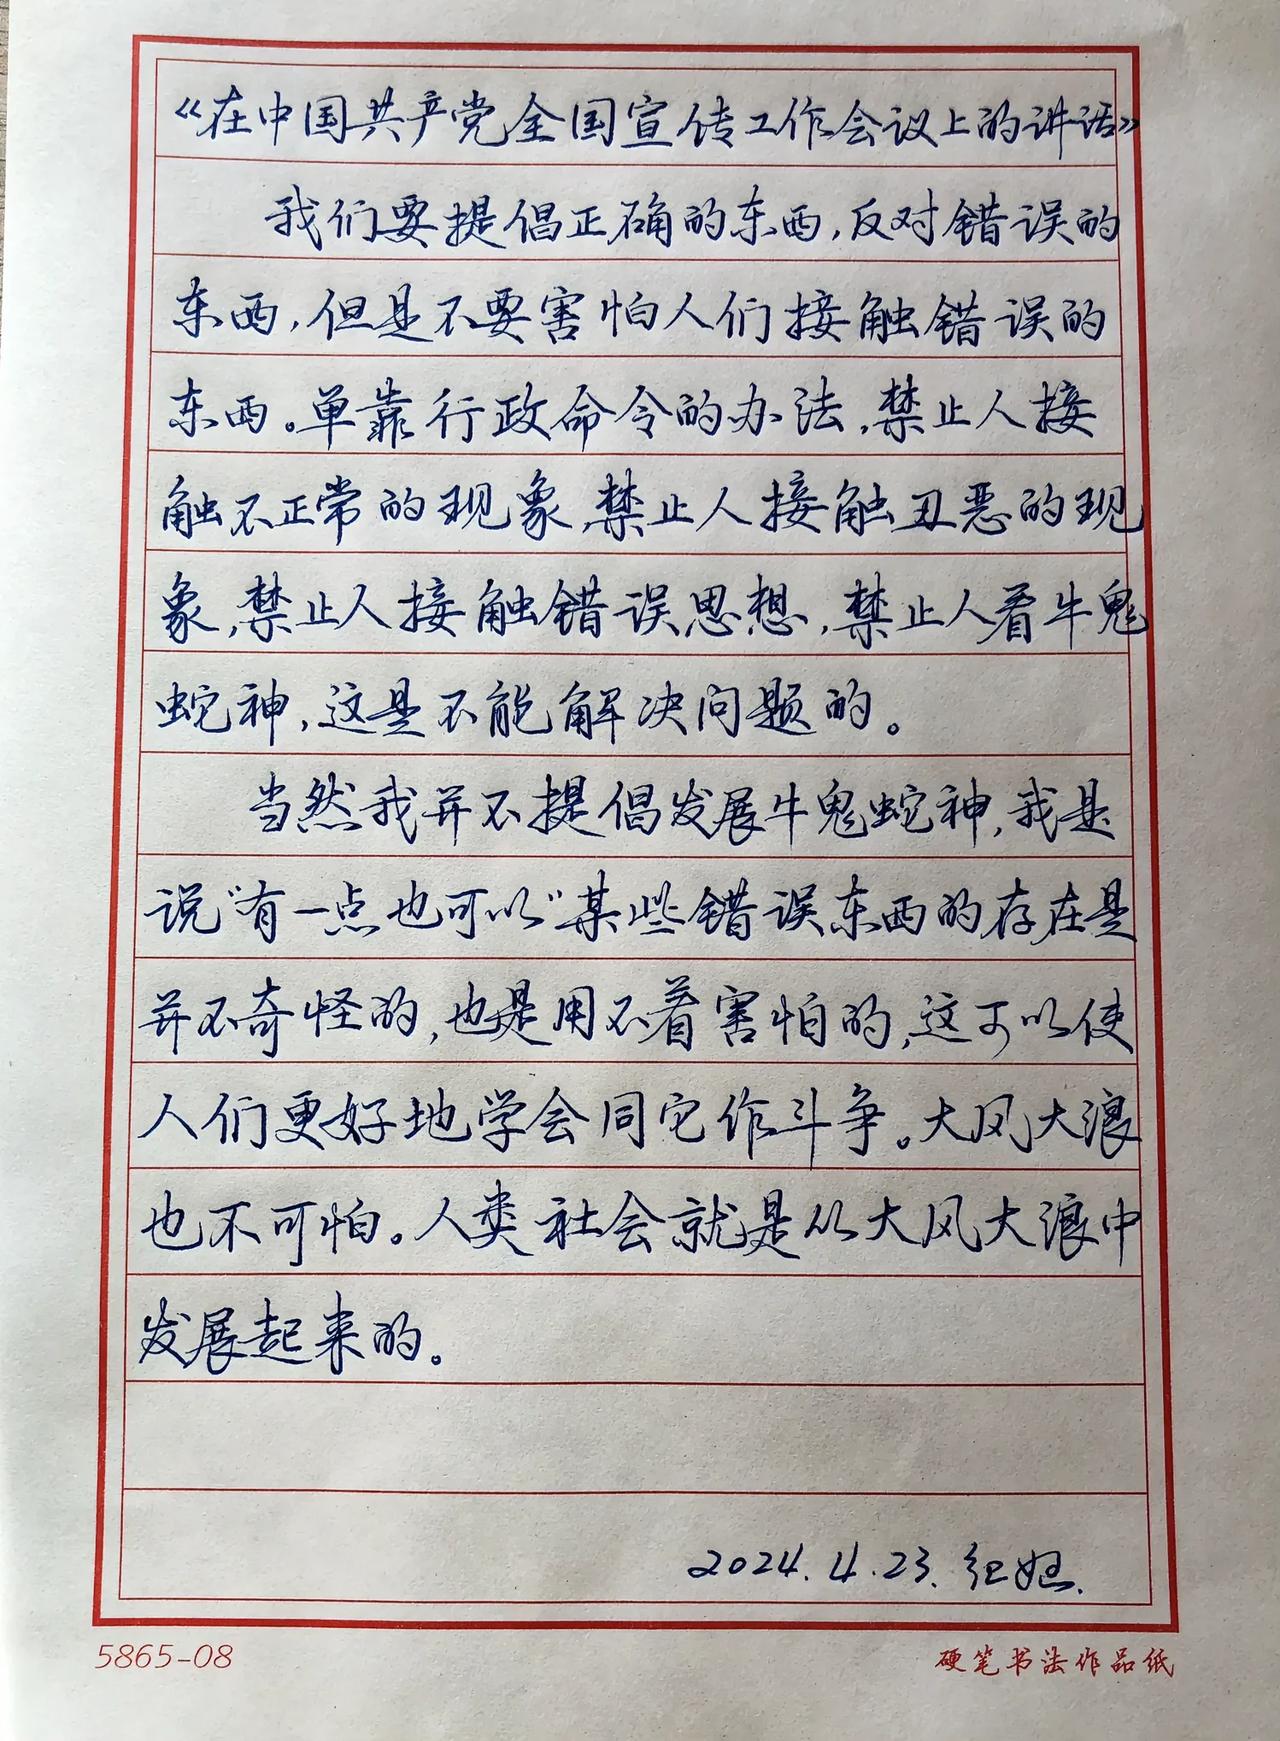 《在中国共产党全国宣传工作会议上的讲话》
我们要提倡正确的东西,反对错误的
东西,但是不要害怕人们接触错误的
东西。单靠行政命令的办法,禁止人接
触不正常的现象,禁止人接触丑恶的现
象,禁止人接触错误思想,禁止人看牛鬼
蛇神,这是不能解决问题的。
当然我并不提倡发展牛鬼蛇神,我是
说“有一点也可以”某些错误东西的存在是
并不奇怪的,也是用不着害怕的,这可以使
人们更好地学会同它作斗争。大风大浪
也不可怕。人类社会就是从大风大浪中
发展起来的。
2024.4.23.
5865-08
硬笔书法作品纸